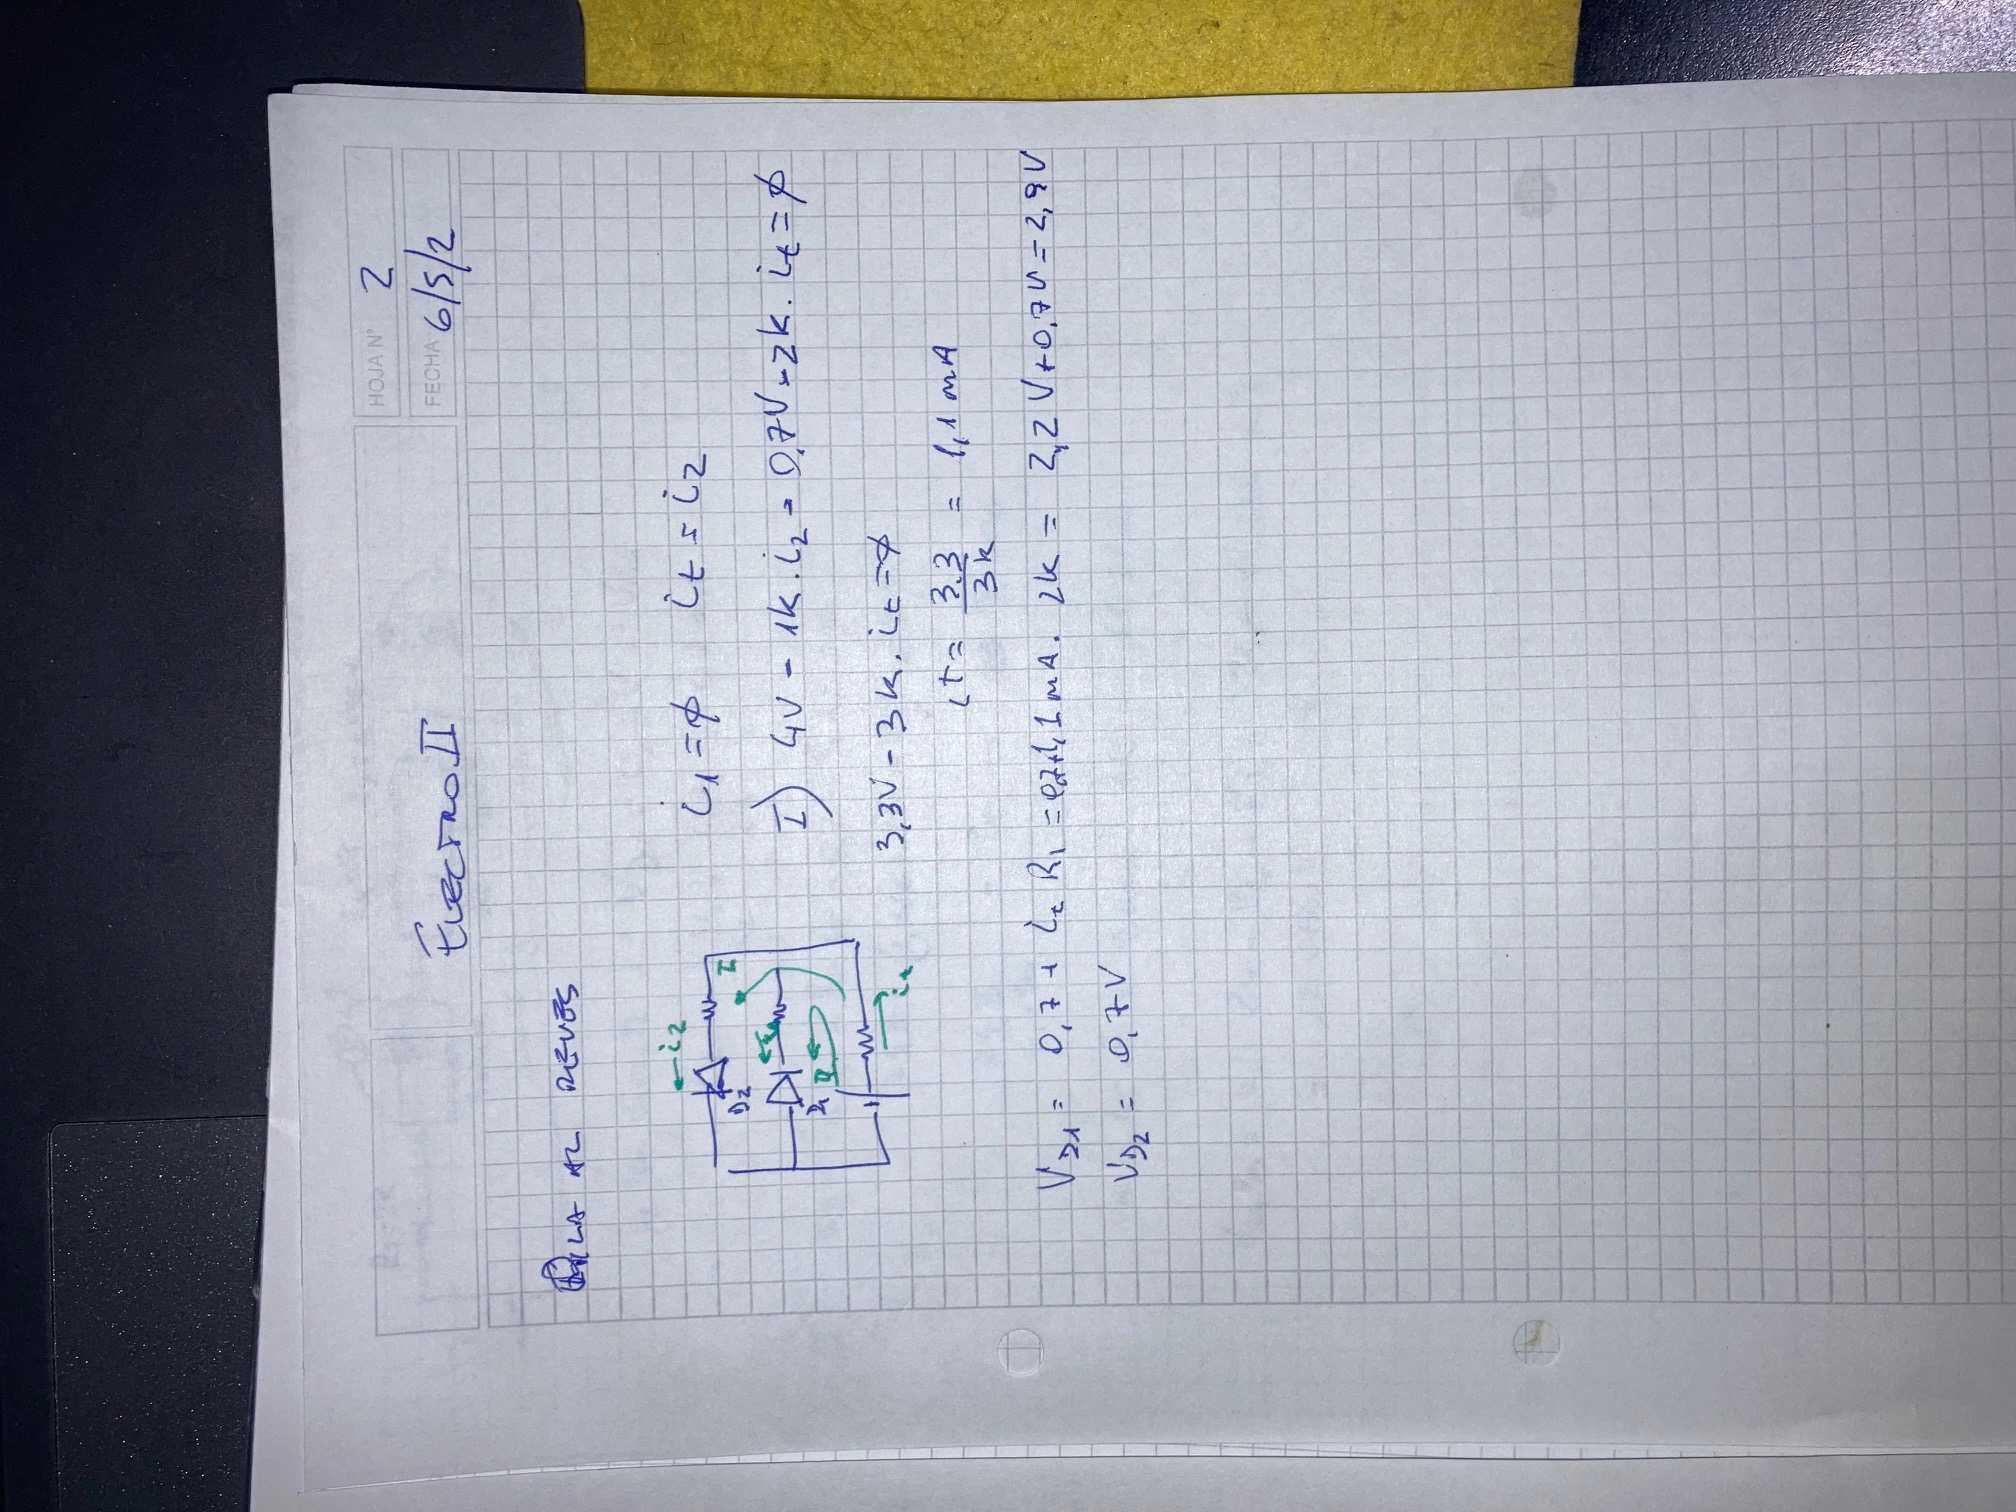 HOJA N° 2
ELECTRO II
FECHA 6/5/2
PILA AL REVES
i2
D2
I
D1
II
it
i1 = ϕ it = i2
I) 4V - 1k . i2 - 0,7V - 2k . it = ϕ
3,3V - 3k . it = ϕ
it = 3.3 / 3k = 1,1 mA
VD1 = 0,7 + it R1 = 0,7+1,1mA . 2k = 2,2V + 0,7V = 2,9V
VD2 = 0,7V